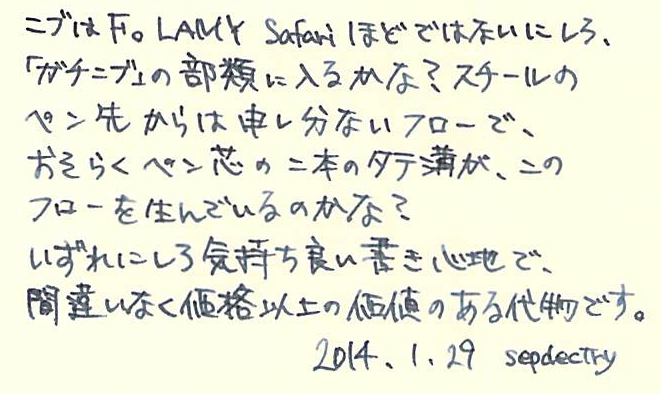 ニブはF。LAMY Safariほどではないにしろ、
「ガチニブ」の部類に入るかな？スチールの
ペン先からは申し分ないフローで、
おそらくペン芯の二本のタテ溝が、この
フローを生んでいるのかな？
いずれにしろ気持ち良い書き心地で、
間違いなく価格以上の価値のある代物です。
2014.1.29 sepdectry